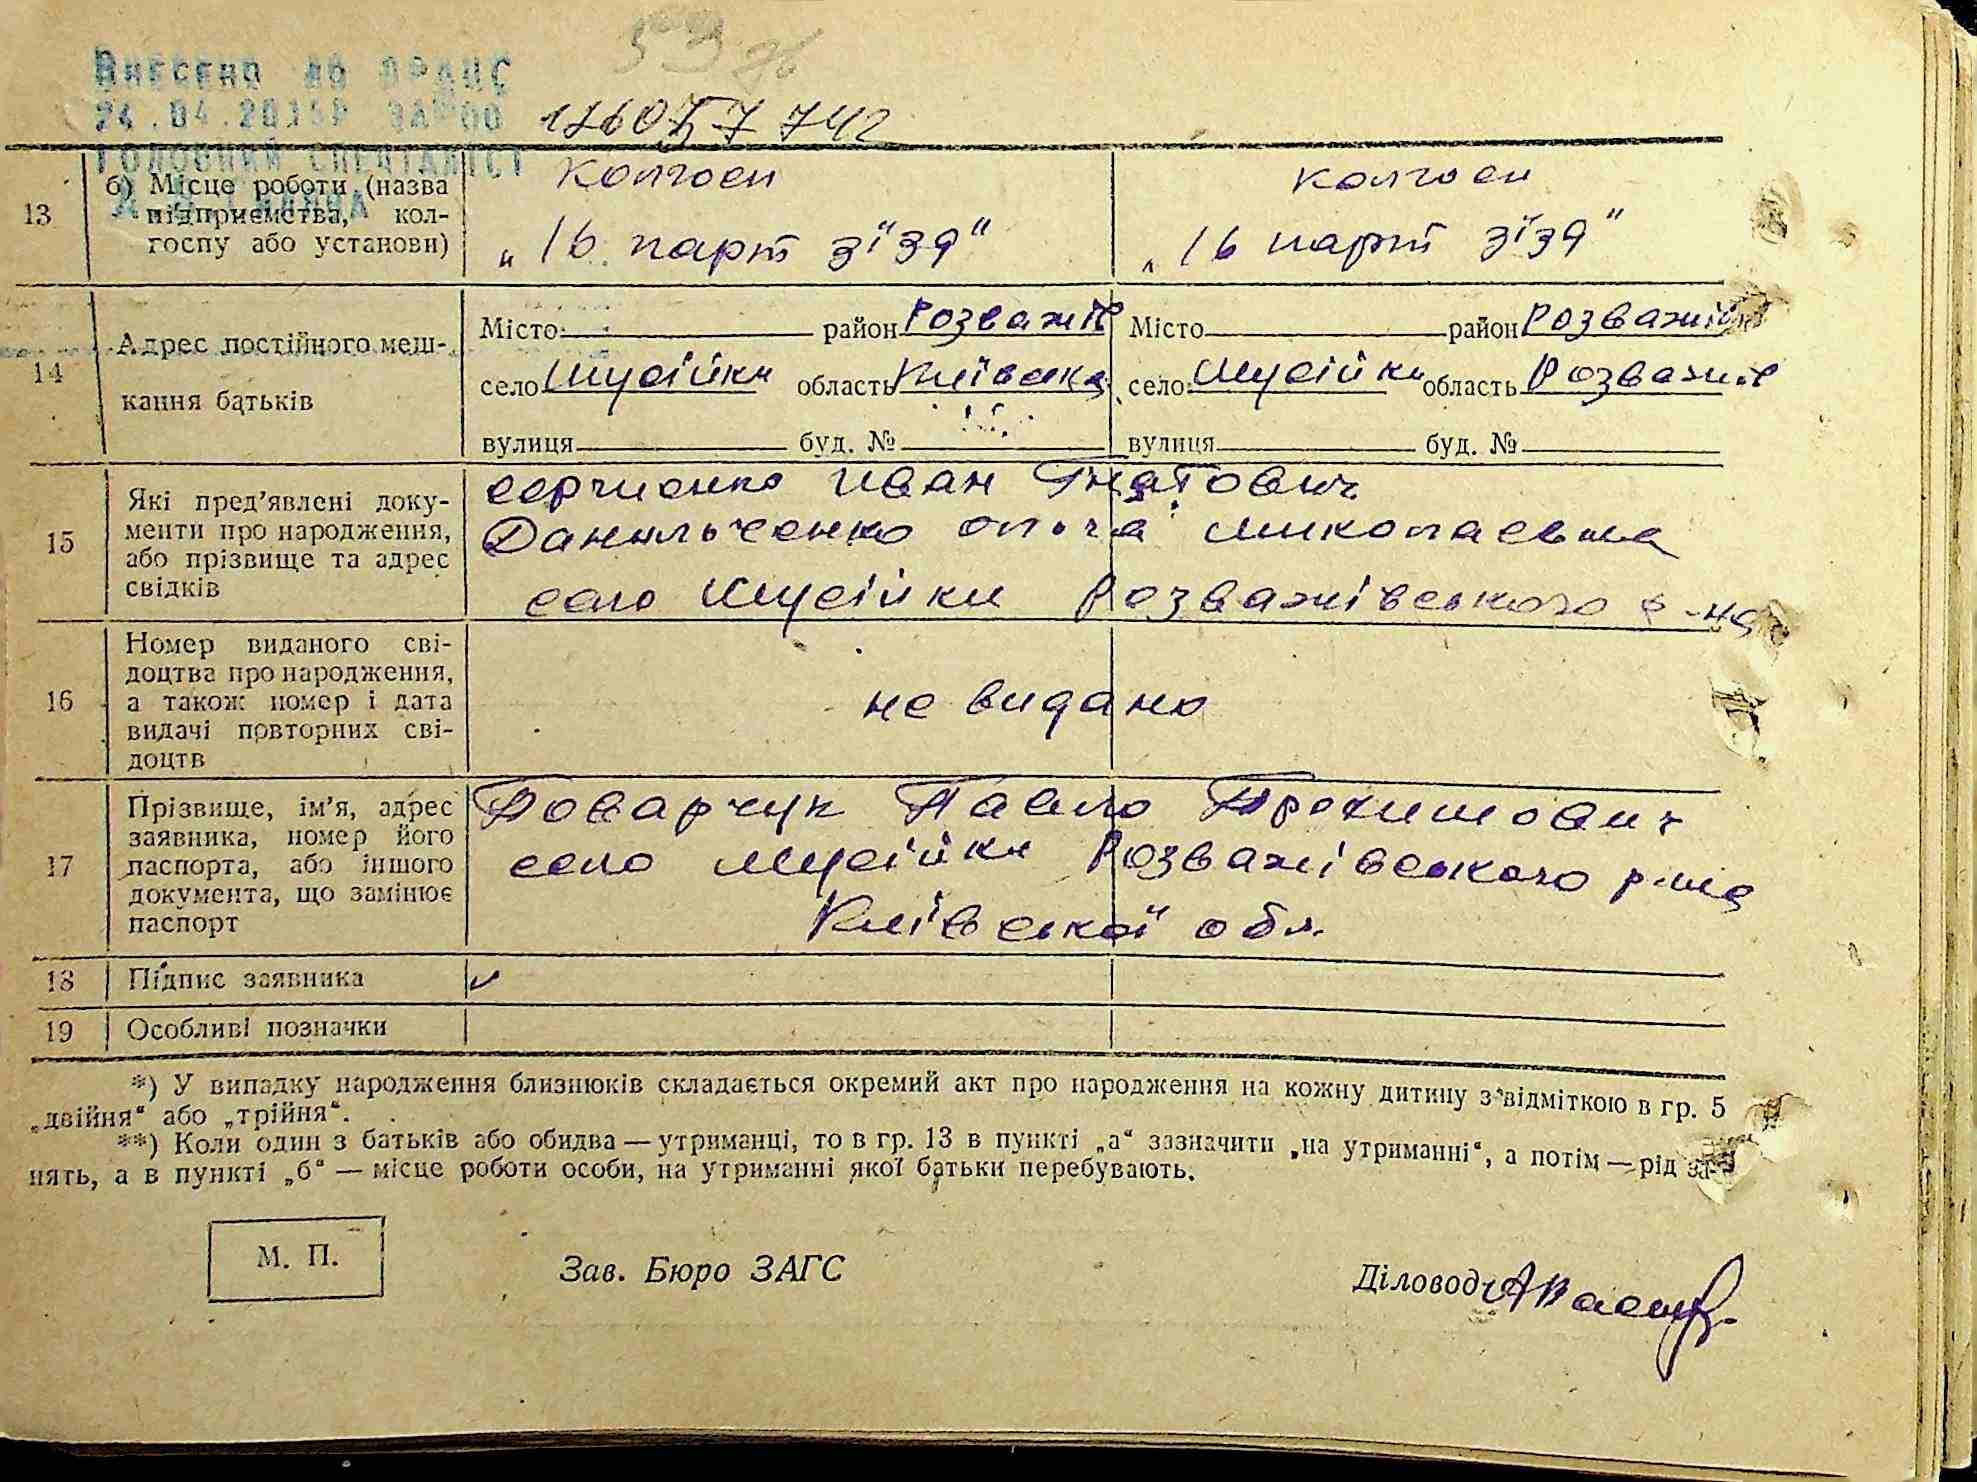 Внесено до ДРАЦС
24.04.2015р
Головний спеціаліст
13
б) Місце роботи (назва
підприємства, кол-
госпу або установи)
колгосп
„16 парт зїзд“
колгосп
„16 парт зїзд“
14
Адрес постійного меш-
кання батьків
Місто район Розважів
село Мусійки область Київська
вулиця буд. №
Місто район Розважів
село Мусійки область Розважів
вулиця буд. №
15
Які пред’явлені доку-
менти про народження,
або прізвище та адрес
свідків
Сергиенко Иван Гнатович
Данильченко Ольга Миколаевна
село Мусійки Розважівського р-на
16
Номер виданого сві-
доцтва про народження,
а також номер і дата
видачі повторних сві-
доцтв
не видано
17
Прізвище, ім’я, адрес
заявника, номер його
паспорта, або іншого
документа, що замінює
паспорт
Павло
село Мусійки Розважівського р-на
Київської обл.
18
Підпис заявника
19
Особливі позначки
*) У випадку народження близнюків складається окремий акт про народження на кожну дитину з відміткою в гр. 5
„двійня“ або „трійня“.
**) Коли один з батьків або обидва — утриманці, то в гр. 13 в пункті „а“ зазначити „на утриманні“, а потім — рід за-
нять, а в пункті „б“ — місце роботи особи, на утриманні якої батьки перебувають.
М. П.
Зав. Бюро ЗАГС
Діловод